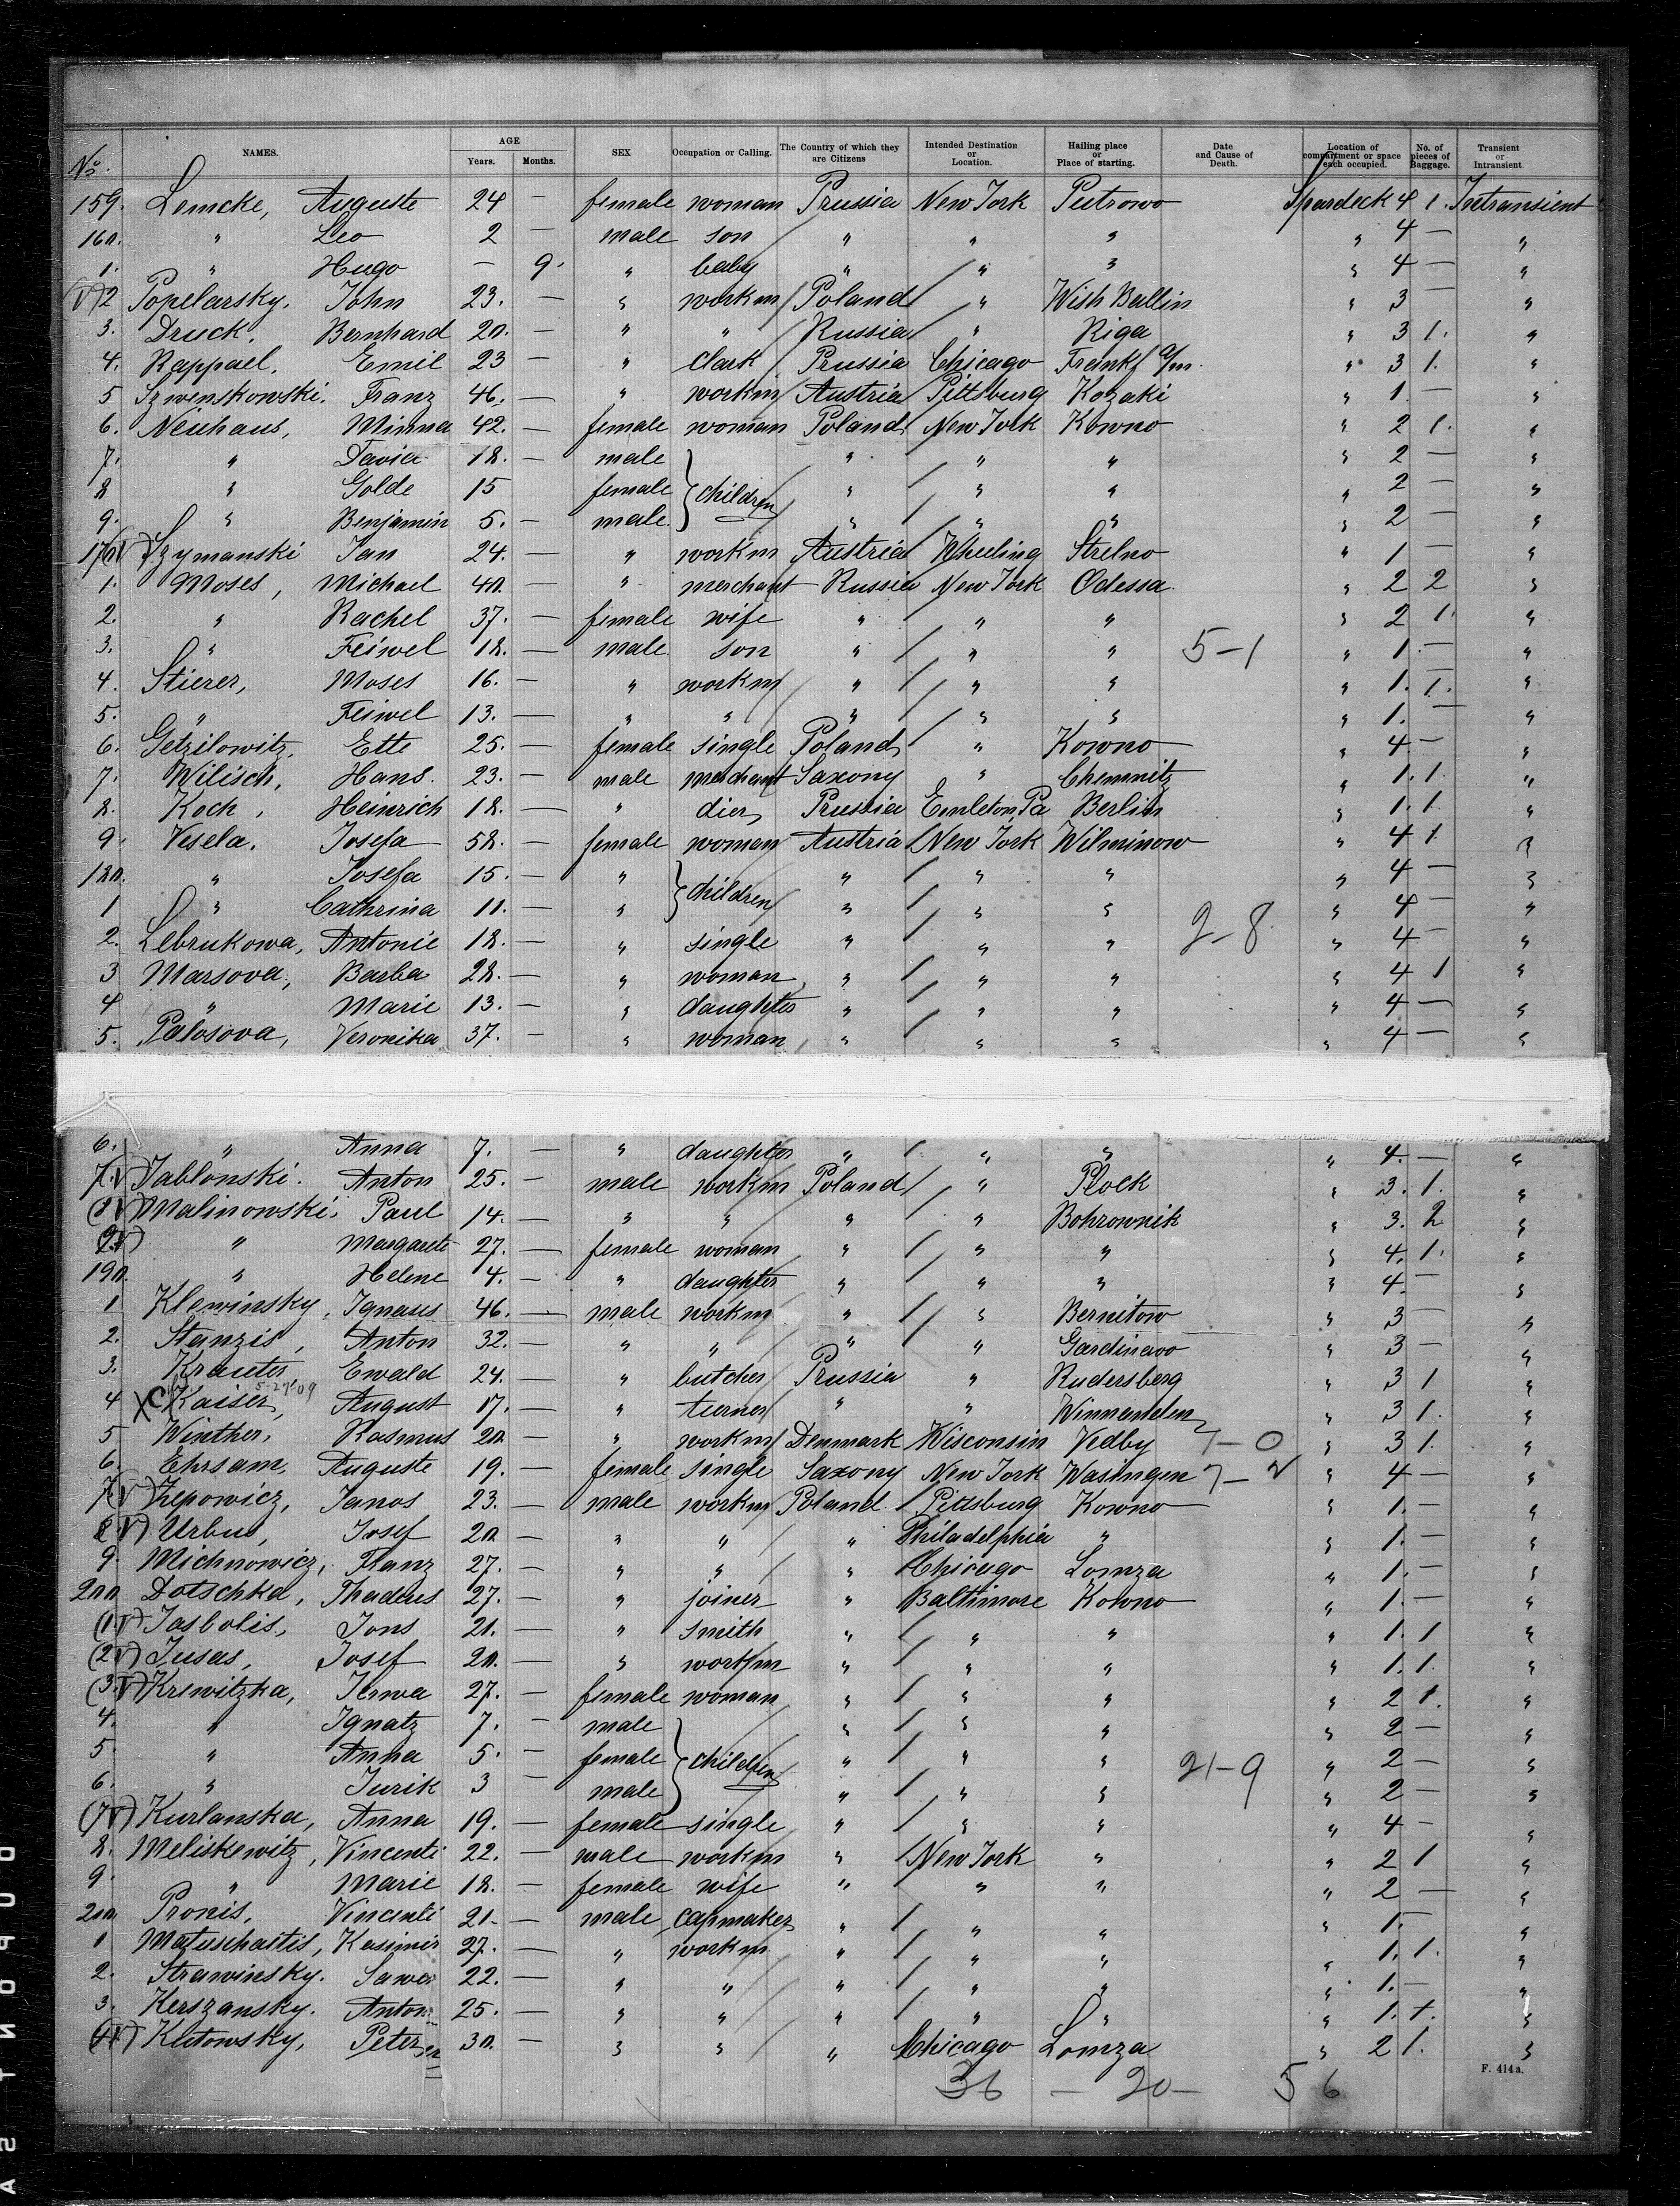 No. NAMES. AGE Years. Months. SEX Occupation or Calling. The Country of which they are Citizens Intended Destination or Location. Hailing place or Place of starting. Date and Cause of Death. Location of compartment or space each occupied. No. of pieces of Baggage. Transient or Intransient.
159. Lemcke, Auguste 24 — female woman Prussia New York Pietrowo Spardeck 4 1. Intransient
160. " Leo 2 — male son " " " " 4 — "
1. " Hugo — 9. " baby " " " " 4 — "
(V) 2 Popelarsky, John 23. — " workm Poland " Wish Ballin " 3 — "
3. Druck, Bernhard 20. — " " Russia " Riga " 3 1. "
4. Rappael, Emil 23 — " Clark Prussia Chicago Frankf a/m. " 3 1. "
5 Szwenskowski. Franz 46. — " workm Austria Pittsburg Kozaki " 1 — "
6. Neuhaus, Minna 42. — female woman Poland New York Kowno " 2 1. "
7. " David 18. — male " " " " 2 — "
8 " Golde 15 female children " " " " 2 — "
9. " Benjamin 5. — male " " " " 2 — "
170 (V) Szymanski Jan 24. — " workm Austria Wheeling Strelno " 1 — "
1. Moses, Michael 40. — " merchant Russia New York Odessa " 2 2 "
2. " Rachel 37. — female wife " " " " 2 1. "
3. " Feiwel 18. — male son " " " 5-1 " 1. — "
4. Stierer, Moses 16. — " workm " " " " 1. 1. "
5. " Feiwel 13. — " " " " " " 1. — "
6. Getzilowitz, Ette 25. — female single Poland " Kowno " 4 — "
7. Wilisch, Hans. 23. — male merchant Saxony " Chemnitz " 1. 1. "
8. Koch, Heinrich 18. — " dier Prussia Emleton, Pa Berlin " 1. 1. "
9. Vesela, Josefa 58. — female woman Austria New York Wilminow " 4 1. "
180. " Josefa 15. — " children " " " " 4 — "
1 " Cathrina 11. — " " " " " 4 — "
2. Lebrukowa, Antonie 18. — " single " " " 2-8 " 4 — "
3 Marsova, Barba 28. — " woman " " " " 4 1 "
4 " Marie 13. — " daughter " " " " 4 — "
5. Palosova, Veronika 37. — " woman " " " " 4 — "
6. " Anna 7. — " daughter " " " " 4. — "
7. (V) Jablonski. Anton 25. — male workm Poland " Plock " 3. 1. "
(8 V) Malinowski, Paul 14. — " " " " Bohrownik " 3. 2 "
(9. V) " Margarete 27. — female woman " " " " 4. 1. "
190. " Helene 4. — " daughter " " " " 4. — "
1 Klewinsky, Ignaus 46. — male workm " " Bernitow " 3 — "
2. Stanzis, Anton 32. — " " " " Gardinawo " 3 — "
3. Krauter Ewald 24. — " butcher Prussia " Rudersberg " 3 1 "
4 XC Kaiser, 5-27-09 August 17. — " turner " " Winnenden " 3 1. "
5 Winther, Rasmus 20 — " workm Denmark Wisconsin Vedby 7-0 " 3 1. "
6. Ehrsam, Auguste 19. — female single Saxony New York Wasingen 7-2 " 4 — "
7 (V) Zepowicz, Janos 23. — male workm Poland Pittsburg Kowno " 1. — "
8 (V) Urbus, Josef 20. — " " " Philadelphia " " 1. — "
9. Michnowicz, Franz 27. — " " " Chicago Lomza " 1. — "
200 Dotschka, Thadeus 27. — " joiner " Baltimore Kowno " 1. — "
(1. V) Jasbolis, Jons 21. — " smith " " " " 1. 1 "
(2 V) Jusas, Josef 20. — " workm " " " " 1. 1. "
(3. V) Krewitzka, Jerwa 27. — female woman " " " " 2 1. "
4. " Ignatz 7. — male " " " " 2 — "
5. " Anna 5. — female children " " " 21-9 " 2 — "
6. " Jurik 3 — male " " " " 2 — "
(7 V) Kurlanska, Anna 19. — female single " " " " 4 — "
8. Meliskewitz, Vincenti 22. — male workm " New York " " 2 1 "
9. " Marie 18. — female wife " " " " 2 — "
210. Pronis, Vincenti 21. — male capmaker " " " " 1. — "
1 Matuschaitis, Kasimir 27. — " workm " " " " 1. 1. "
2. Strawinsky. 22. — " " " " " " 1. — "
3. Kerszansky. Anton 25. — " " " " " " 1. 1. "
(4 V) Kutowsky, Peter 30. — " " " Chicago Lomza " 2 1. "
36 — 20 — 56
F. 414 a.